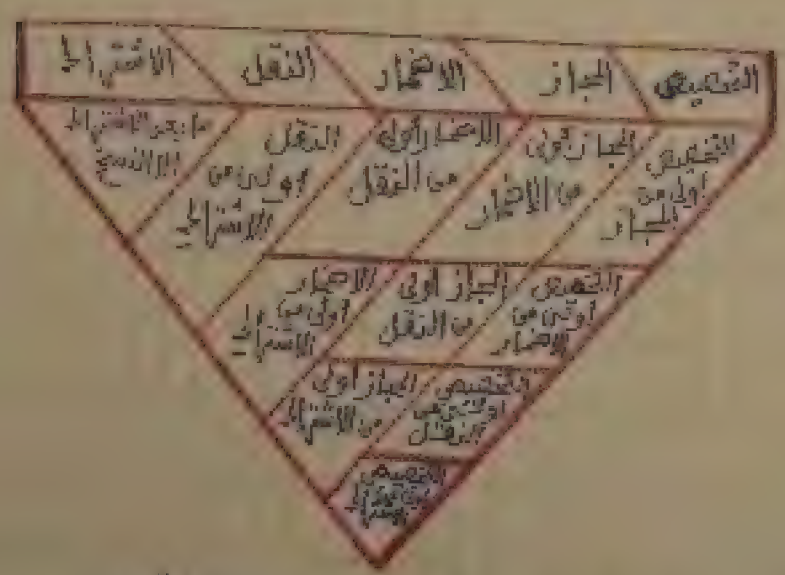 التخصيص المجاز الاضمار النقل الاشتراك
التخصيص
اولى من
المجاز
المجاز أولى
من الاضمار
الاضمار أولى
من النقل
النقل
اولى من
الاشتراك
ما بعد الاشتراك
الا النسخ
التخصيص
اولى من
الاضمار
المجاز اولى
من النقل
الاضمار
اولى من
الاشتراك
التخصيص
اولى من
النقل
المجاز اولى
من الاشتراك
التخصيص
اولى من
الاشتراك